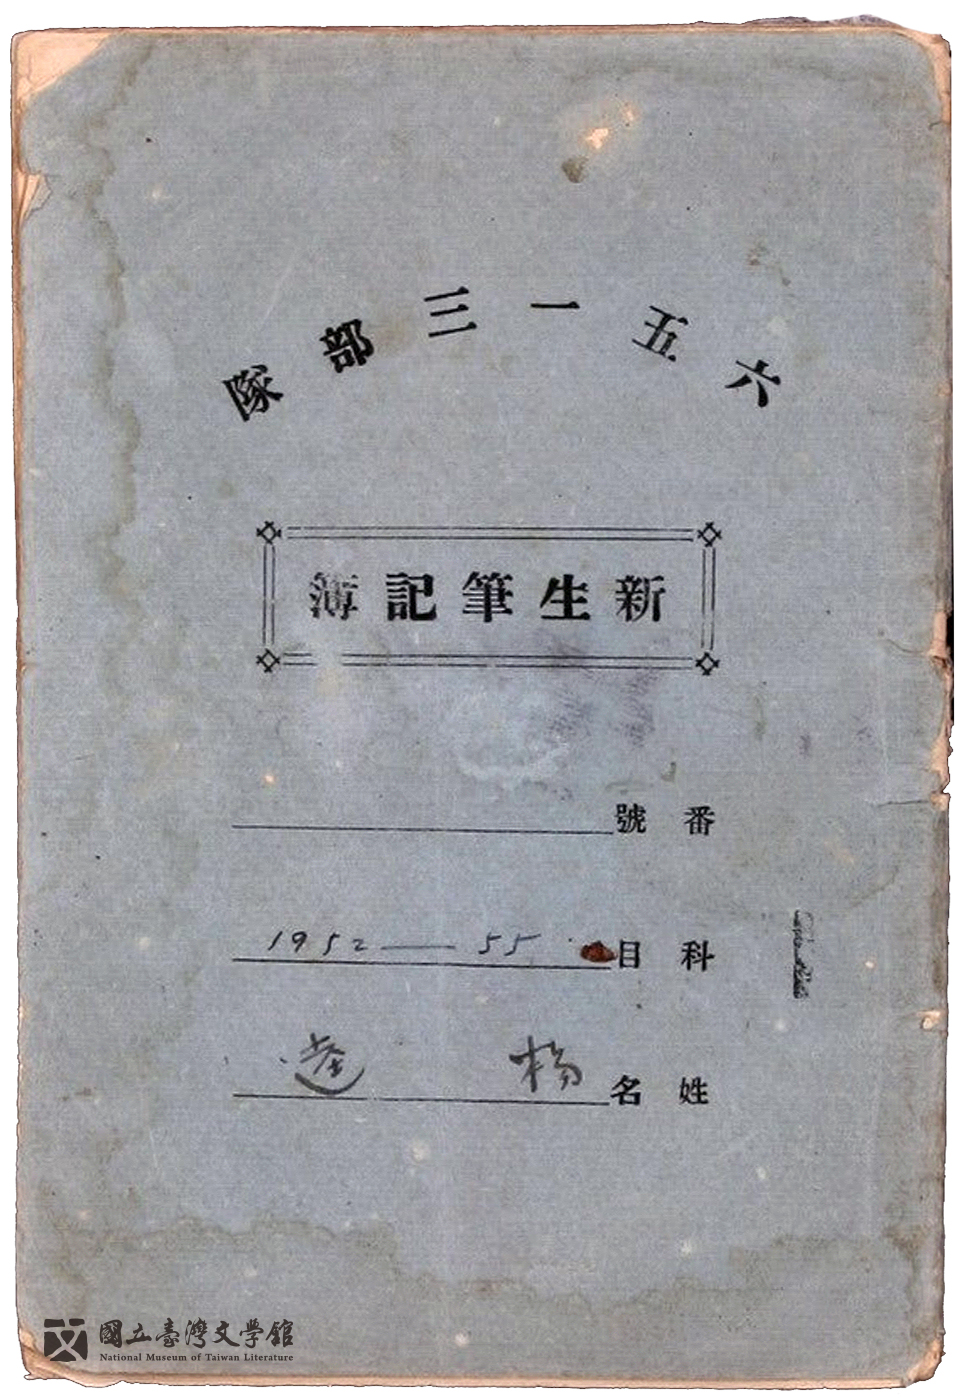 六五一三部隊
新生筆記簿
番號
科目 1952—55
姓名 楊逵
國立臺灣文學館
National Museum of Taiwan Literature